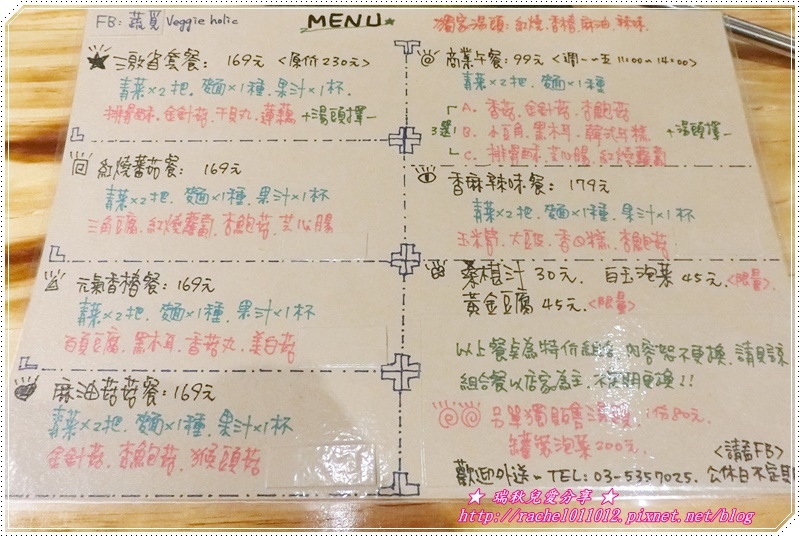 FB: 蔬覓 Veggie holic
MENU
獨家湯頭: 紅燒.香椿.麻油.辣味.
三敢省套餐: 169元 <原价230元>
青菜×2把. 麵×1種. 果汁×1杯.
排骨酥.金針菇.干貝丸.蓮藕 +湯頭擇一
回 紅燒蕃茄餐: 169元
青菜×2把. 麵×1種.果汁×1杯
三角豆腐.紅燒蘿蔔.杏鮑菇.芝心腸
元氣香椿餐: 169元
青菜×2把. 麵×1種. 果汁×1杯
百頁豆腐.黑木耳.香菇丸.美白菇
麻油菇菇餐: 169元
青菜×2把. 麵×1種. 果汁×1杯
金針菇.杏鮑菇.猴頭菇
商業午餐: 99元 <週一~五 11:00~14:00>
青菜×2把. 麵×1種
3選1
A. 香菇.金針菇.杏鮑菇
B. 小豆角.黑木耳.韓式年糕 +湯頭擇一
C. 排骨酥.芝心腸.紅燒蘿蔔
香麻辣味餐: 179元
青菜×2把. 麵×1種. 果汁×1杯
玉米筍.大豆皮.香Q糕.杏鮑菇
桑椹汁 30元. 白玉泡菜 45元.<限量>.
黃金豆腐 45元.<限量>
以上餐点為特价組合 內容恕不更換,請見諒
組合餐以店家為主,不定期更換!!
另單獨販售湯頭 1份80元.
罐裝泡菜200元.
<請看FB>
歡迎外送~TEL: 03-5357025. 公休日不定期
★ 瑞秋兒愛分享 ★
http://rachel011012.pixnet.net/blog